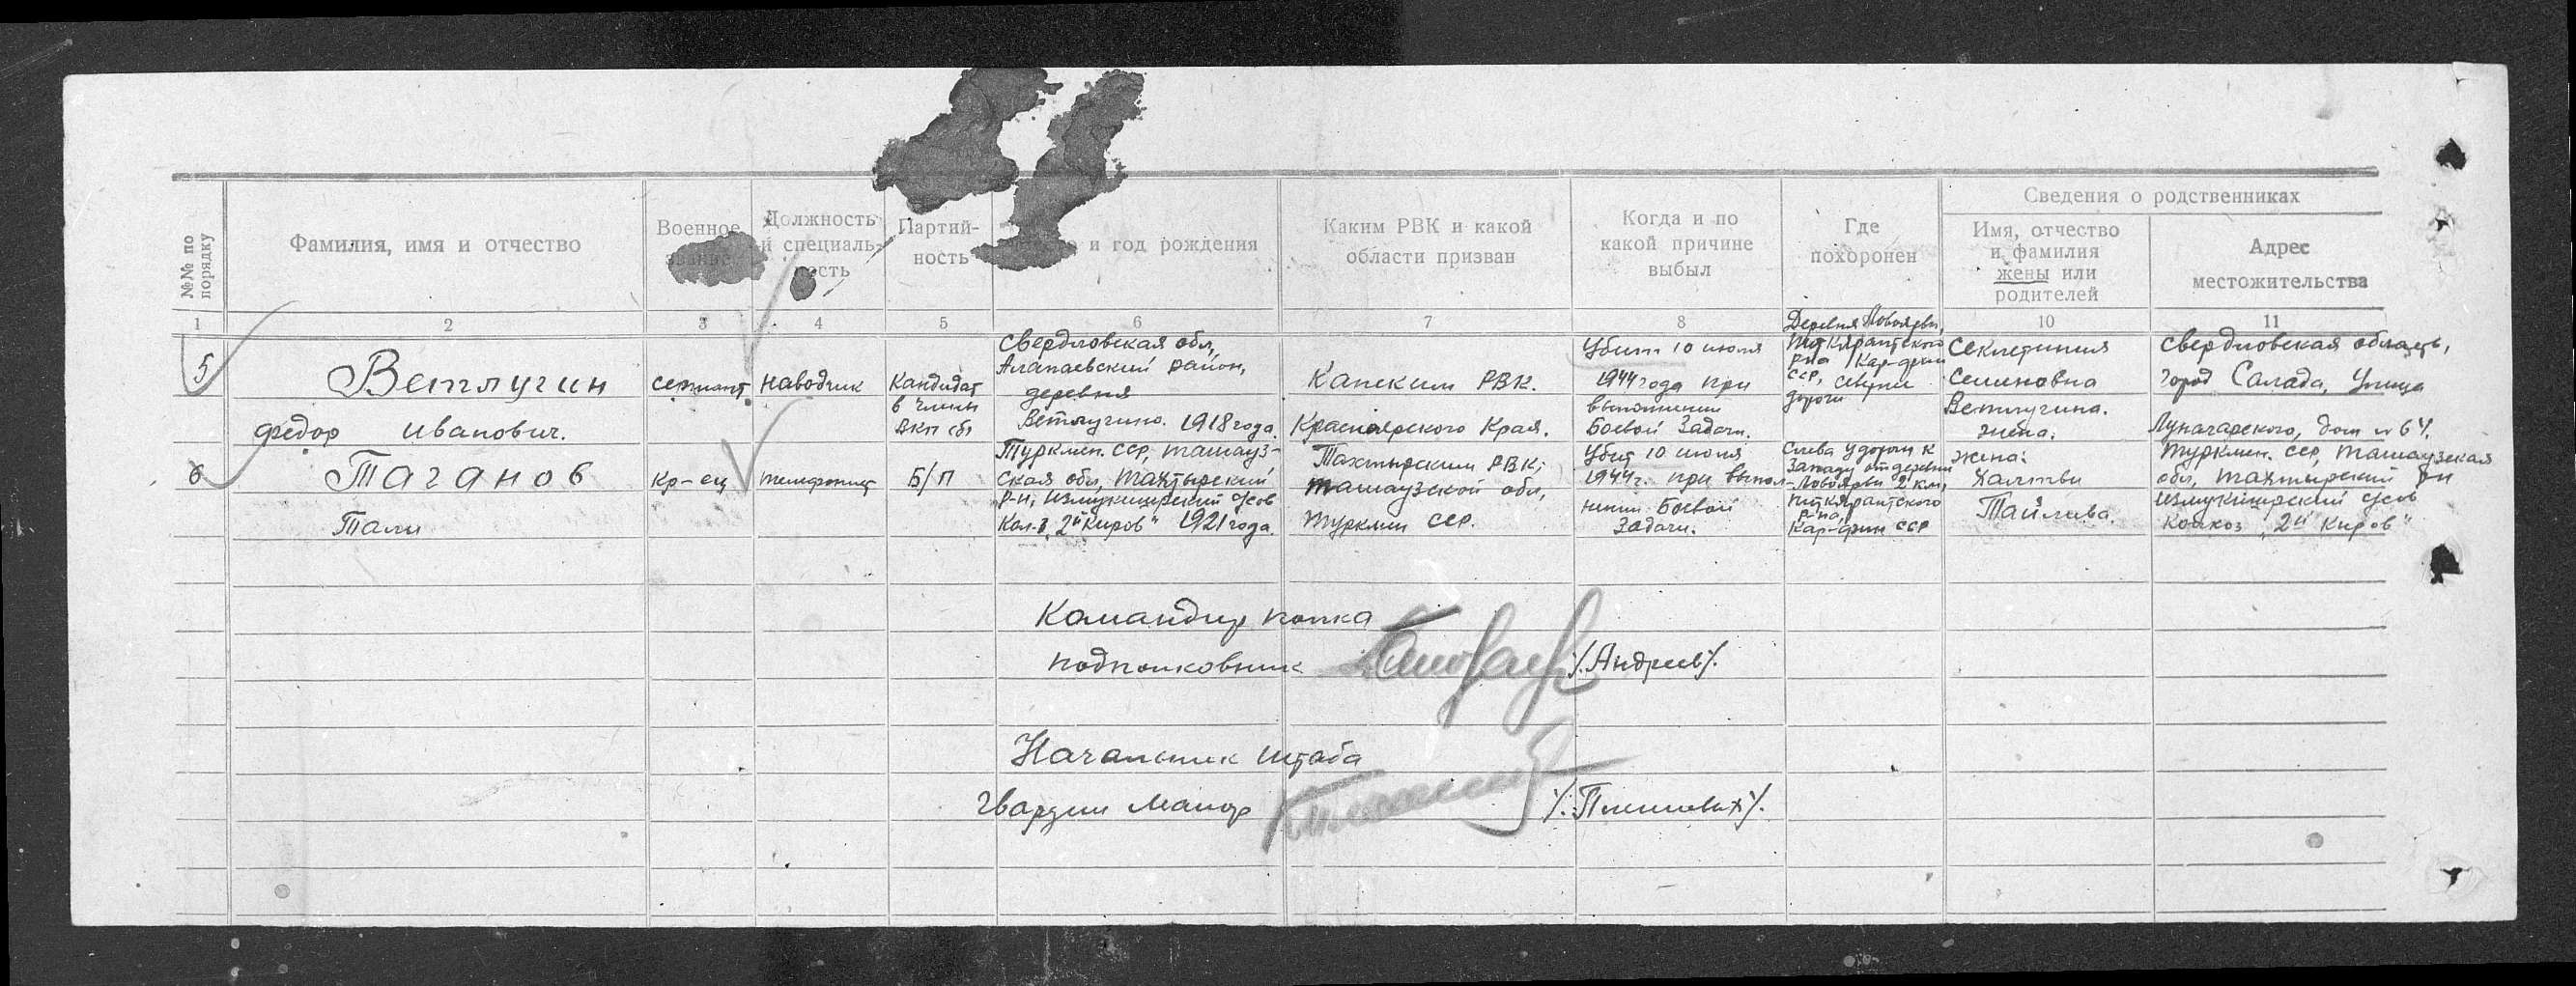 Сведения о родственниках
№№ по порядку
Фамилия, имя и отчество
Военное звание
Должность и специальность
Партийность
и год рождения
Каким РВК и какой области призван
Когда и по какой причине выбыл
Где похоронен
Имя, отчество и фамилия жены или родителей
Адрес местожительства
1 2 3 4 5 6 7 8 10 11
5
Ветлугин
Федор Иванович.
сержант
наводчик
Кандидат
в члены
ВКП(б)
Свердловская обл,
Алапаевский район,
деревня
Ветлугино. 1918 года.
Канским РВК.
Красноярского Края.
Убит 10 июня
1944 года при
выполнении
Боевой Задачи.
Деревня
Питкярантского
р-на Кар-фин
ССР,
дороги
Секлетиния
Семеновна
Ветлугина.
жена.
Свердловская область,
город Салада, Улица
Луначарского, дом № 64.
6
Таганов
Тали
Кр-ец
телефонист
Б/П
Туркмен. ССР, Ташауз-
ская обл, Тахтырский
р-н, усов
Кол-з „2й Киров“ 1921 года.
Тахтырским РВК;
Ташаузской обл,
Туркмен ССР.
Убит 10 июня
1944г. при выпол-
нении Боевой
Задачи.
Слева у дороги к
Западу от деревни
2 км,
Питкярантского
р-на,
Кар-фин ССР
жена:
Туркмен. ССР, Ташаузская
обл, Тахтырский р-н
Колхоз „2й Киров“
Командир полка
подполковник /.Андреев/.
Начальник штаба
Гвардии Майор